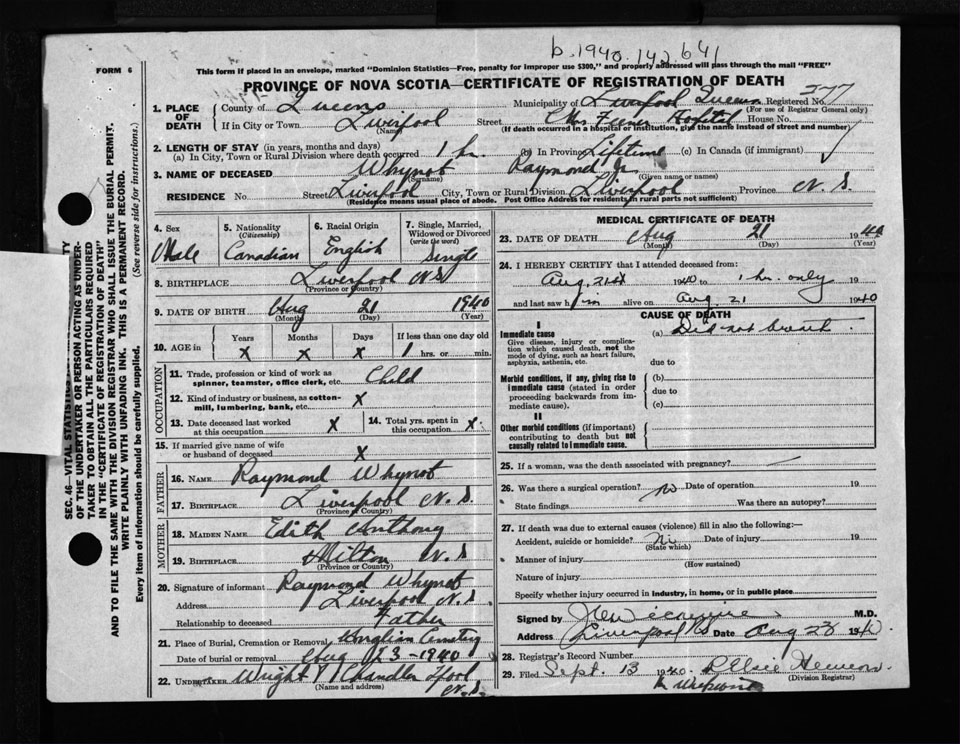 b. 1940. 142641
FORM 6
This form if placed in an envelope, marked "Dominion Statistics—Free, penalty for improper use $300," and properly addressed will pass through the mail "FREE"
PROVINCE OF NOVA SCOTIA—CERTIFICATE OF REGISTRATION OF DEATH
277
1. PLACE OF DEATH County of Queens Municipality of Liverpool Queens Registered No.
(For use of Registrar General only)
If in City or Town Liverpool Street Hospital House No.
(Name) (If death occurred in a hospital or institution, give the name instead of street and number)
2. LENGTH OF STAY (in years, months and days)
(a) In City, Town or Rural Division where death occurred 1 hr. (b) In Province Lifetime (c) In Canada (if immigrant)
3. NAME OF DECEASED Whynot Raymond Jr.
(Surname) (Given name or names)
RESIDENCE No. Street Liverpool City, Town or Rural Division Liverpool Province N. S.
(Residence means usual place of abode. Post Office Address for residents in rural parts not sufficient)
4. Sex Male
5. Nationality (Citizenship) Canadian
6. Racial Origin English
7. Single, Married, Widowed or Divorced (write the word) Single
8. BIRTHPLACE Liverpool N.S.
(Province or Country)
9. DATE OF BIRTH Aug 21 1940
(Month) (Day) (Year)
10. AGE in Years Months Days If less than one day old
x x x 1 hrs. or min.
OCCUPATION
11. Trade, profession or kind of work as spinner, teamster, office clerk, etc. Child
12. Kind of industry or business, as cotton-mill, lumbering, bank, etc. x
13. Date deceased last worked at this occupation x
14. Total yrs. spent in this occupation x
15. If married give name of wife or husband of deceased x
FATHER
16. NAME Raymond Whynot
17. BIRTHPLACE Liverpool N. S.
(Province or Country)
MOTHER
18. MAIDEN NAME Edith Anthony
19. BIRTHPLACE Milton N. S.
(Province or Country)
20. Signature of informant Raymond Whynot
Address Liverpool N. S.
Relationship to deceased Father
21. Place of Burial, Cremation or Removal Cemetery
Date of burial or removal Aug 23-1940
22. UNDERTAKER Wright Chandler Lpool N. S.
(Name and address)
MEDICAL CERTIFICATE OF DEATH
23. DATE OF DEATH Aug 21 1940
(Month) (Day) (Year)
24. I HEREBY CERTIFY that I attended deceased from:
Aug. 21st 1940 1 hr. only 19
and last saw him alive on Aug. 21 1940
CAUSE OF DEATH
I
Immediate cause
Give disease, injury or complication which caused death, not the mode of dying, such as heart failure, asphyxia, asthenia, etc.
(a) Did not breath
due to
Morbid conditions, if any, giving rise to immediate cause (stated in order proceeding backwards from immediate).
(b)
due to
(c)
II
Other morbid conditions (if important) contributing to death but not causally related to immediate cause.
25. If a woman, was the death associated with pregnancy?
26. Was there a surgical operation? no Date of operation 19
State findings Was there an autopsy?
27. If death was due to external causes (violence) fill in also the following:—
Accident, suicide or homicide? Date of injury 19
(State which)
Manner of injury
(How sustained)
Nature of injury
Specify whether injury occurred in industry, in home, or in public place
Signed by M.D.
Address Liverpool Date Aug 26 1940
28. Registrar's Record Number
29. Filed Sept. 13 1940
(Division Registrar)
SEC. 46—VITAL STATISTICS
OF THE UNDERTAKER OR PERSON ACTING AS UNDERTAKER TO OBTAIN ALL THE PARTICULARS REQUIRED
IN THE "CERTIFICATE OF REGISTRATION OF DEATH"
AND TO FILE THE SAME WITH THE DIVISION REGISTRAR WHO SHALL ISSUE THE BURIAL PERMIT.
WRITE PLAINLY WITH UNFADING INK. THIS IS A PERMANENT RECORD.
Every item of information should be carefully supplied. (See reverse side for instructions)